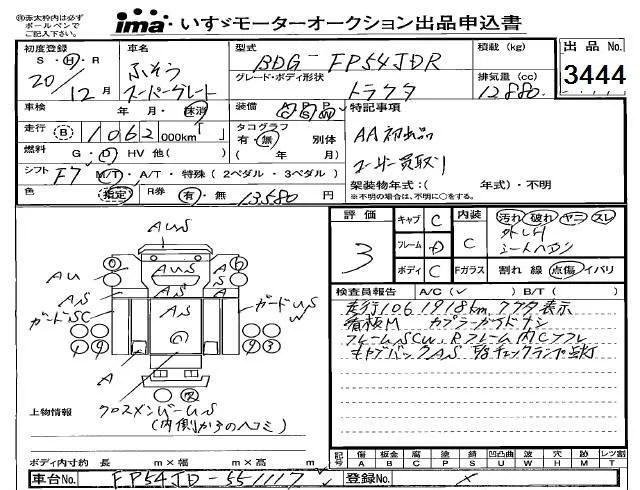 ㊟赤太枠内は必ず
ボールペンでご記入下さい。
ima いすゞモーターオークション出品申込書
初度登録
S・H・R
20/12月
車名
ふそう
スーパーグレート
型式
BDG-FP54JDR
グレード・ボディ形状
トラクタ
積載(kg)
排気量(cc)
12880
出品No.
3444
車検
年・月・抹消
走行 (B) 1062 000km「 」
燃料
G・D HV 他( )
シフト F7 M/T・A/T・特殊(2ペダル・3ペダル)
色 指定 R券 有・無 13,580 円
装備 A/C P/S P/W
タコグラフ
有・無 別体
( 年 月)
特記事項
AA初出品
ユーザー買取り
架装物年式:( 年式)・不明
※不明の場合は、不明に○をする。
評価
3
キャブ C
フレーム D
ボディ C
内装
C
Fガラス
汚れ 破れ ヤニ スレ
シートヘタリ
割れ 線 点傷 イバリ
検査員報告 A/C( ✓ ) B/T( )
走行1061918km
カプラーガイドナシ
フレームSCW、Rフレーム内Cフレ
キャブバックAS チェックランプ点灯
AUS
AU
AUS
A
AS
AS
A
AS
AS
ガードSC
ガードUS
W
A
クロスメンバーUS
(内側からのヘコミ)
上物情報
ボディ内寸約 長 m×幅 m×高 m
記号
傷 A
板金 B
腐 C
塗 P
錆 S
凹凸曲 U
波 W
穴 H
跡 M
レツ割 T
車台No. FP54JD-551117
登録No. ×